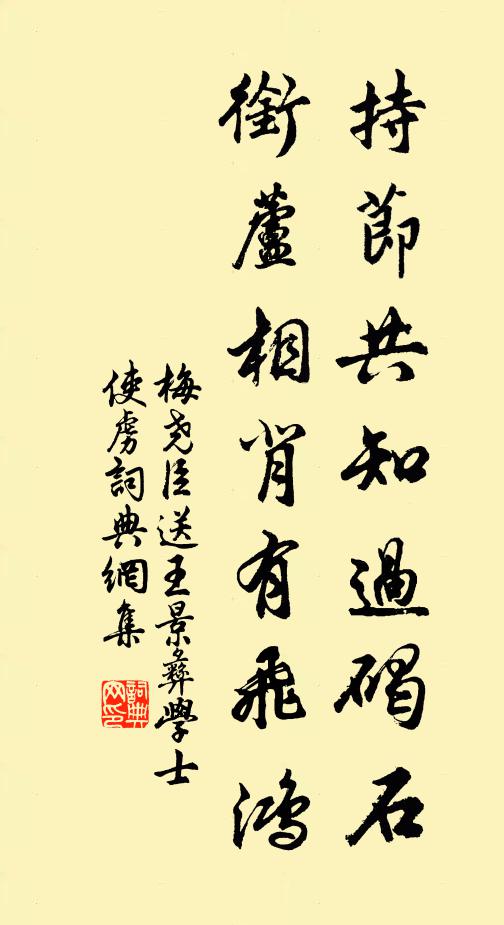 持節共知過碣石
銜蘆相背有飛鴻
梅堯臣送王景彞學士
使虜詞典網集
詞典网印